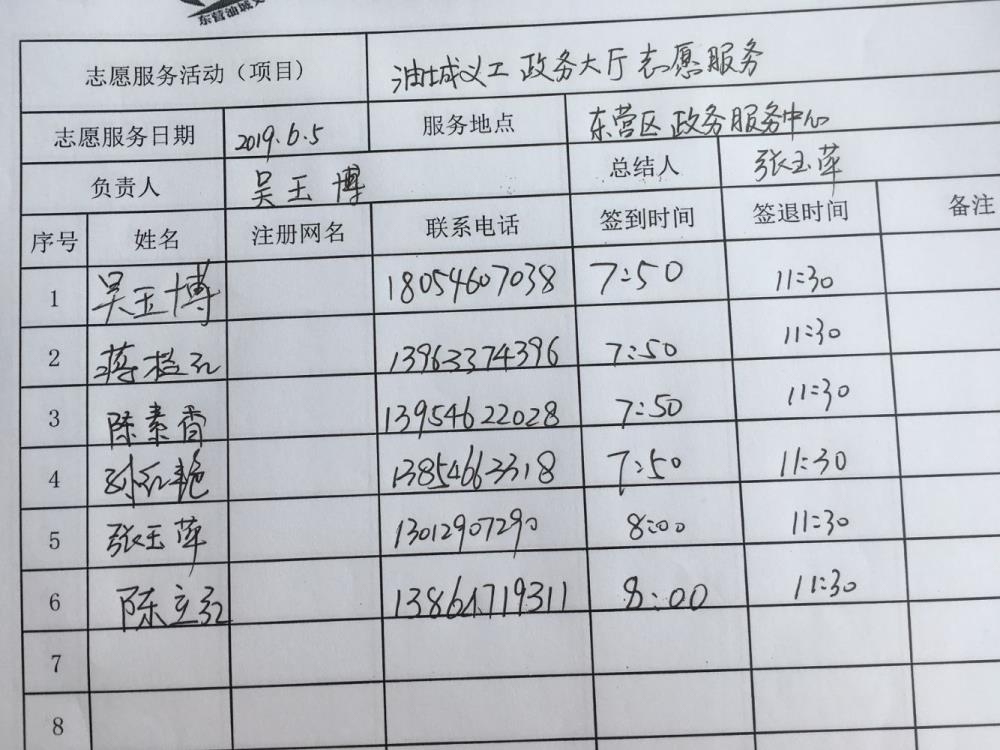 东营油城义
志愿服务活动（项目） 油城义工 政务大厅 志愿服务
志愿服务日期 2019.6.5 服务地点 东营区 政务服务中心
负责人 吴玉博 总结人 张玉萍
序号 姓名 注册网名 联系电话 签到时间 签退时间 备注
1 吴玉博 18054607038 7:50 11:30
2 蒋 红 13963374396 7:50 11:30
3 陈素香 13954622028 7:50 11:30
4 红艳 13854663318 7:50 11:30
5 张玉萍 13012907290 8:00 11:30
6 陈立红 13864719311 8:00 11:30
7
8